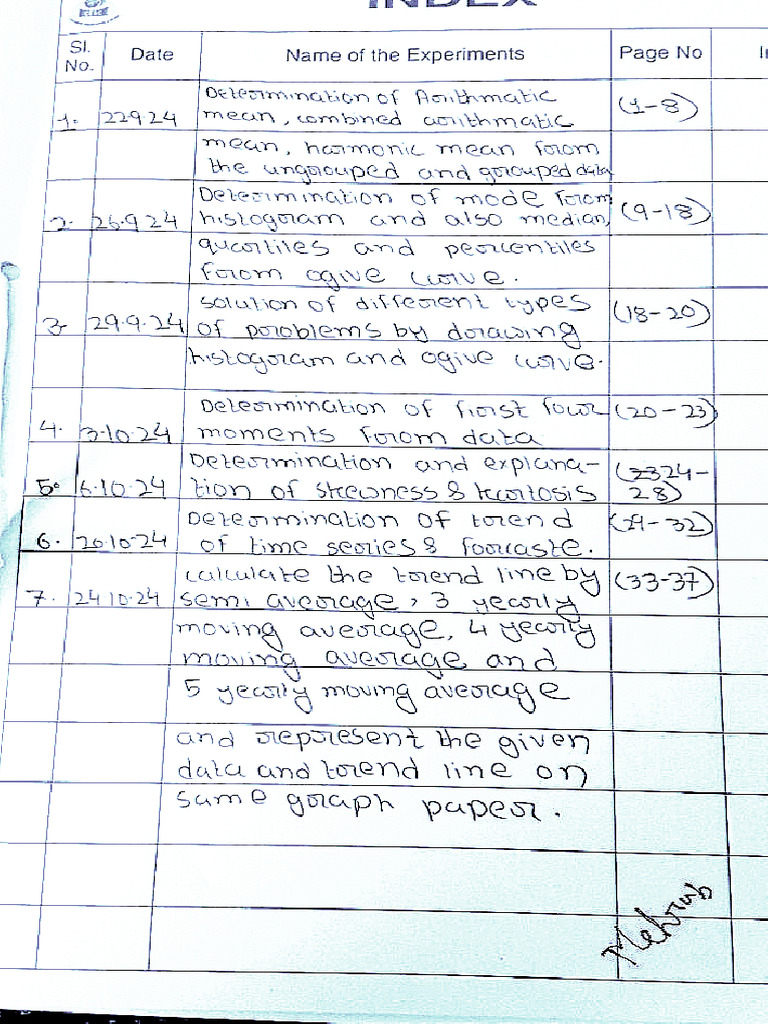 INDEX
Sl. No. Date Name of the Experiments Page No
Determination of Arithmatic
1. 22.9.24 mean, combined arithmatic (1-8)
mean, harmonic mean from
the ungrouped and grouped data
Determination of mode from
2. 26.9.24 histogram and also median, (9-18)
quartiles and percentiles
from ogive curve.
solution of different types
3. 29.9.24 of problems by drawing (18-20)
histogram and ogive curve.
Determination of first four (20-23)
4. 3.10.24 moments from data
Determination and explana- (24-
5. 6.10.24 tion of skewness & kurtosis 28)
Determination of trend (29-32)
6. 20.10.24 of time series & forcaste.
calculate the trend line by (33-37)
7. 24.10.24 semi average, 3 yearly
moving average, 4 yearly
moving average and
5 yearly moving average
and represent the given
data and trend line on
same graph paper.
Mehrab